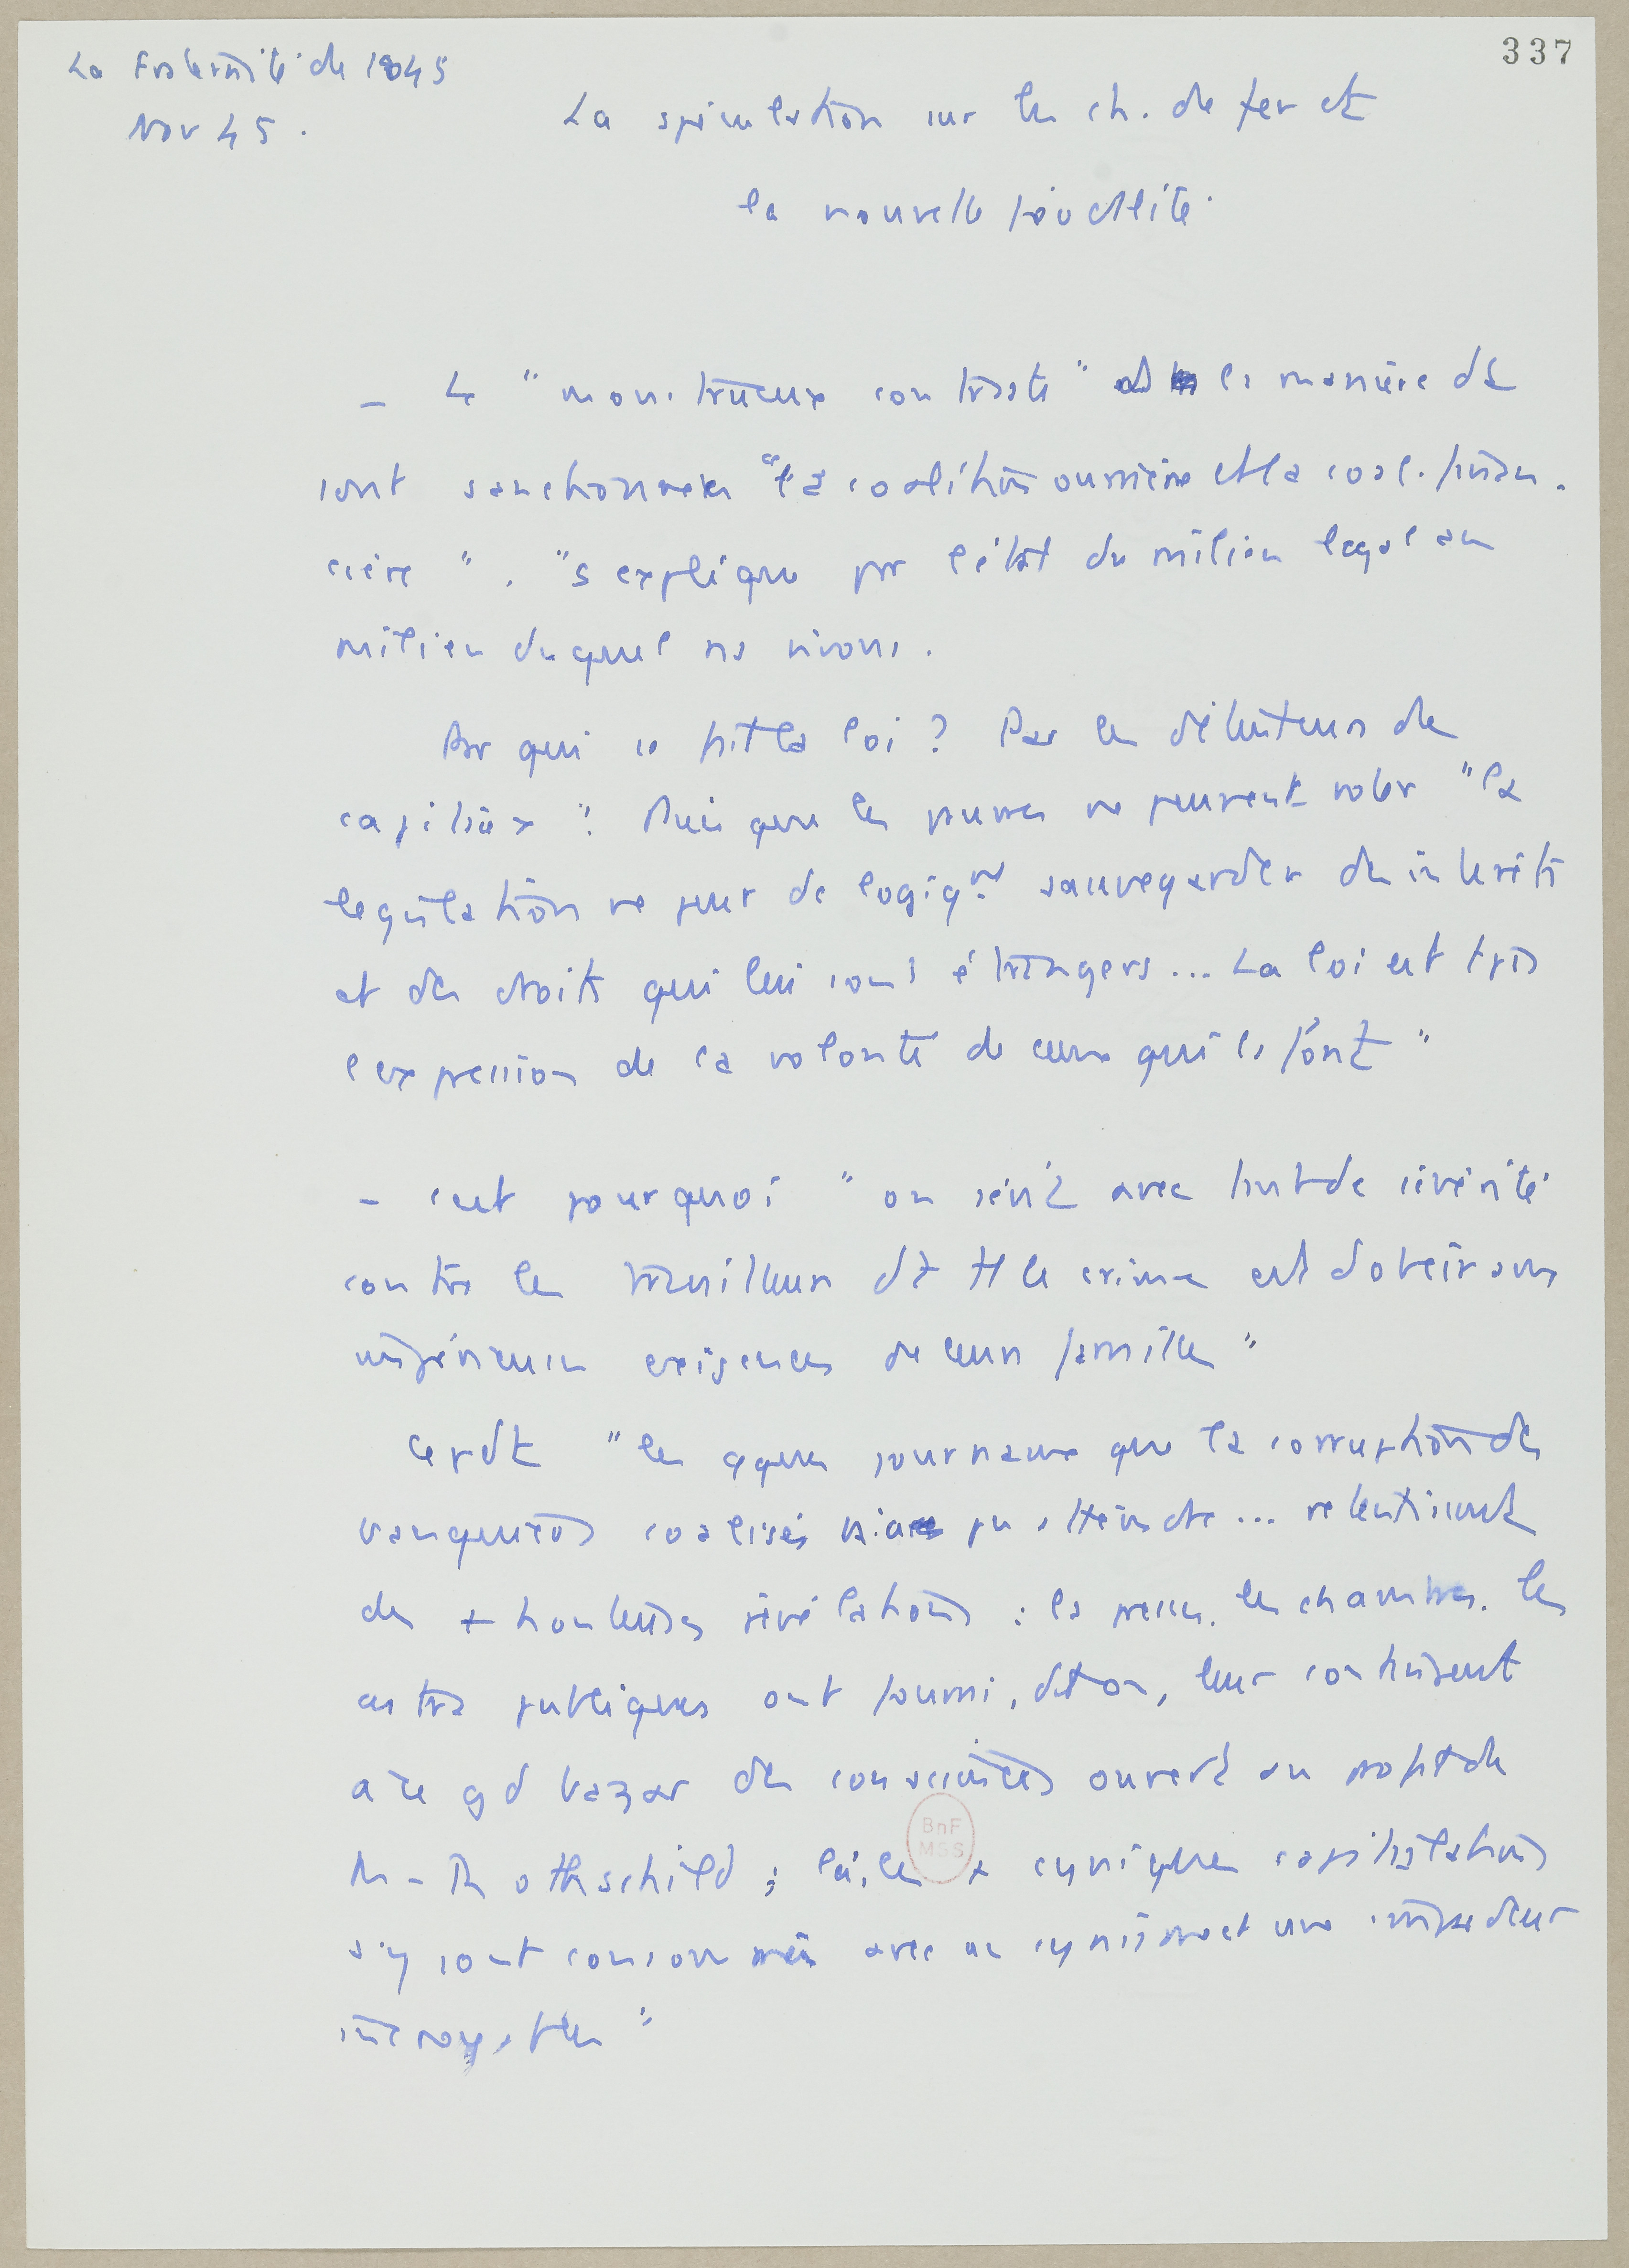 337
La Fraternité de 1845
Nov 45.
La spéculation sur les ch. de fer et
la nouvelle féodalité.
– Le "monstrueux contraste" ds la manière dt
sont sanctionnées "la coalition ouvrière et la coal. finan-
cière". "s'explique par l'état du milieu légal au
milieu duquel ns vivons.
Par qui se fait la loi ? Par les détenteurs de
capitaux : Puisque les pauvres ne peuvent voter "la
législation ne peut dc logiqnt sauvegarder des intérêts
et des droits qui lui sont étrangers... La loi est tjs
l'expression de la volonté de ceux qui la font"
– c'est pourquoi "on sévit avec tant de sévérité
contre les travailleurs dt tt le crime est d'obéir aux
impérieuses exigences de leurs familles"
Cepdt "les qques journaux que la corruption des
banquiers coalisés n'a pu atteindre... retentissent
des + honteuses révélations : la presse, les chambres, les
admins publiques ont fourni, dit on, leur contingent
à ce gd bazar des consciences ouvert au profit de
M. Rothschild ; là, les + cyniques capitulations
s'y sont consommées avec un cynisme et une impudeur
incroyables"
BnF
MSS